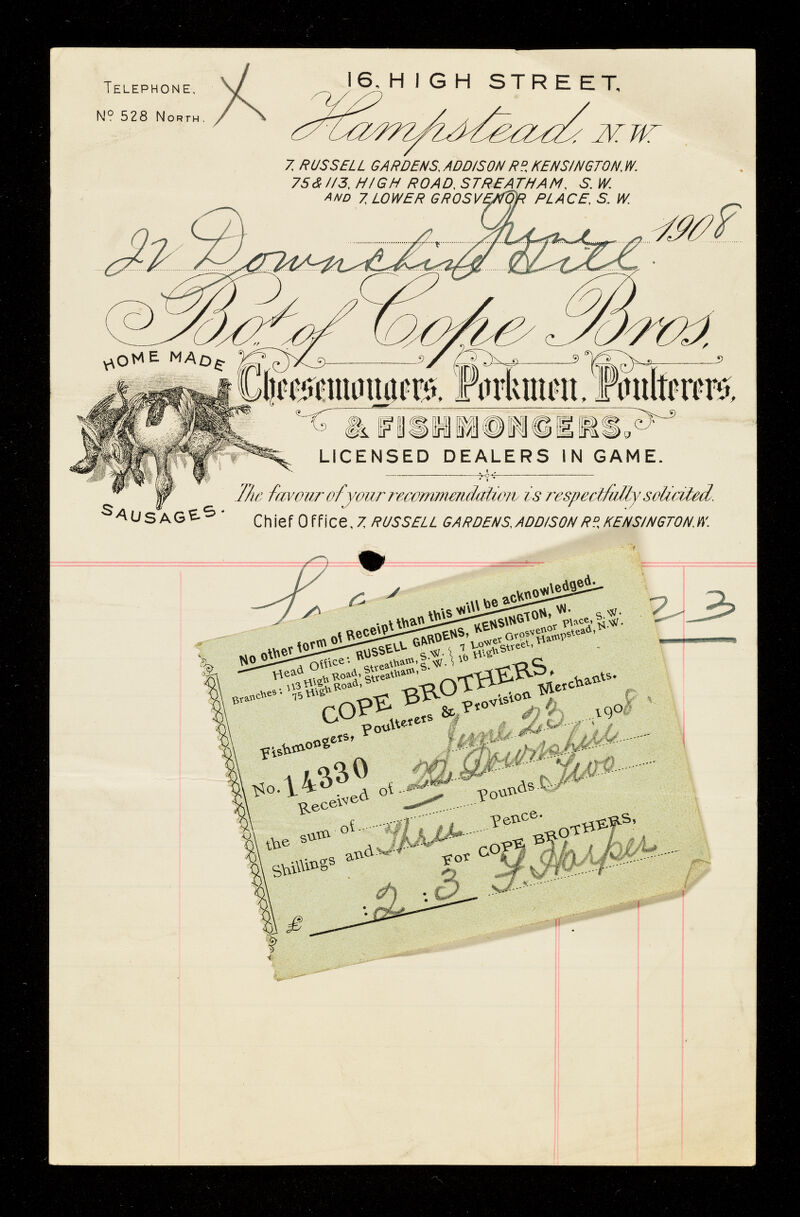 TELEPHONE,
Nº 528 NORTH.
X
16, HIGH STREET,
Hampstead, N.W.
7, RUSSELL GARDENS, ADDISON RD, KENSINGTON, W.
75 & 113, HIGH ROAD, STREATHAM, S.W.
AND 7, LOWER GROSVENOR PLACE, S.W.
June 1908
22 Downshire Hill
Bot of Cope Bros,
HOME MADE
SAUSAGES.
Cheesemongers, Porkmen, Poulterers,
& FISHMONGERS,
LICENSED DEALERS IN GAME.
The favour of your recommendation is respectfully solicited.
Chief Office, 7, RUSSELL GARDENS, ADDISON RD, KENSINGTON, W.
2 3
No other form of Receipt than this will be acknowledged.
Head Office: RUSSELL GARDENS, KENSINGTON, W.
Branches: 113 High Road, Streatham, S.W. } 7 Lower Grosvenor Place, S.W.
75 High Road, Streatham, S.W. } 16 High Street, Hampstead, N.W.
COPE BROTHERS,
Fishmongers, Poulterers & Provision Merchants.
June 23 1908.
No. 14330
Received of 22 Downshill
the sum of Pounds Two
Shillings and Three Pence.
For COPE BROTHERS,
£ : 2 : 3 F. Harper